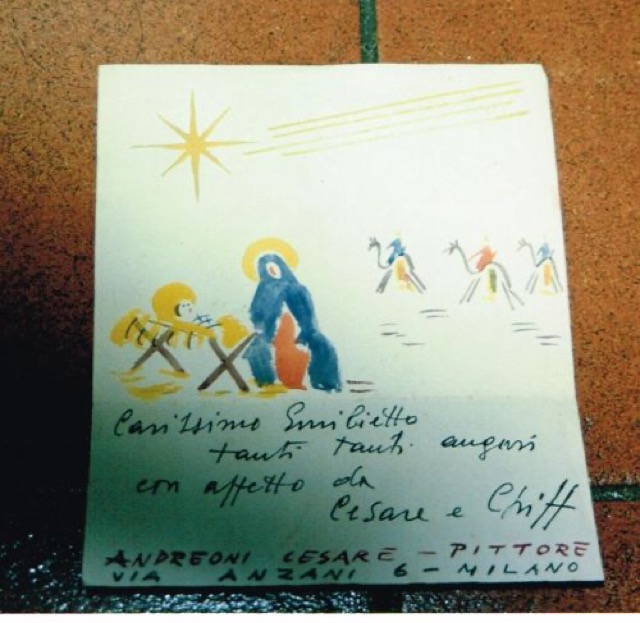 Carissimo Emilietto
tanti tanti auguri
con affetto da
Cesare e
ANDREONI CESARE - PITTORE
VIA ANZANI 6 - MILANO